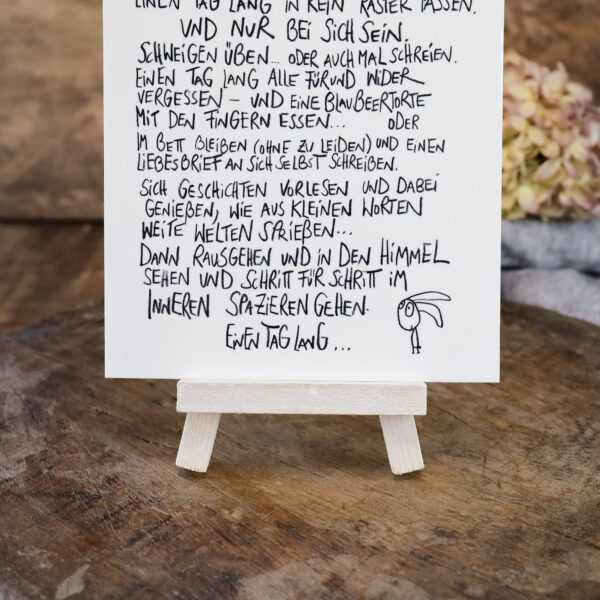 EINEN TAG LANG IN KEIN RASTER PASSEN.
UND NUR BEI SICH SEIN.
SCHWEIGEN ÜBEN... ODER AUCH MAL SCHREIEN.
EINEN TAG LANG ALLE FÜR UND WIDER
VERGESSEN – UND EINE BLAUBEERTORTE
MIT DEN FINGERN ESSEN... ODER
IM BETT BLEIBEN (OHNE ZU LEIDEN) UND EINEN
LIEBESBRIEF AN SICH SELBST SCHREIBEN.
SICH GESCHICHTEN VORLESEN UND DABEI
GENIEßEN, WIE AUS KLEINEN WORTEN
WEITE WELTEN SPRIEßEN...
DANN RAUSGEHEN UND IN DEN HIMMEL
SEHEN UND SCHRITT FÜR SCHRITT IM
INNEREN SPAZIEREN GEHEN.
EINEN TAG LANG...